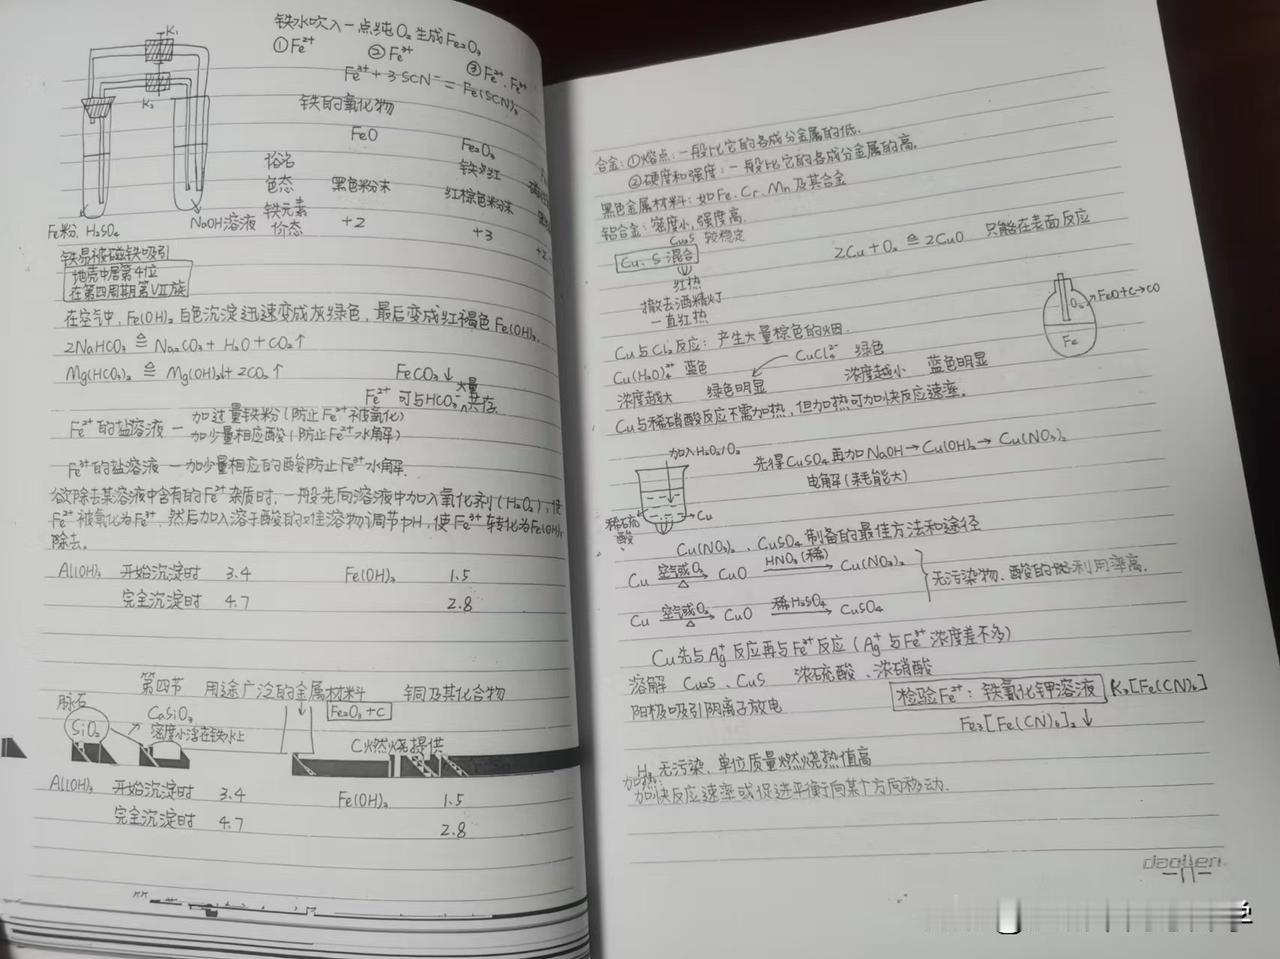 铁水吹入一点纯O₂生成Fe₂O₃
①Fe²⁺ ②Fe³⁺ ③Fe²⁺、Fe³⁺
Fe³⁺+3SCN⁻=Fe(SCN)₃
K₁
K₂
铁的氧化物
FeO Fe₂O₃
俗名 铁红
色态 黑色粉末 红棕色粉末
铁元素价态 +2 +3
Fe粉、H₂SO₄ NaOH溶液
铁易被磁铁吸引
地壳中居第4位
在第四周期第VII族
在空气中,Fe(OH)₂白色沉淀迅速变成灰绿色,最后变成红褐色Fe(OH)₃.
2NaHCO₃ ≙ Na₂CO₃+H₂O+CO₂↑
Mg(HCO₃)₂ ≙ Mg(OH)₂↓+2CO₂↑ FeCO₃↓
大量
Fe²⁺可与HCO₃⁻共存
Fe²⁺的盐溶液—加过量铁粉(防止Fe²⁺被氧化)
加少量相应酸(防止Fe²⁺水解)
Fe³⁺的盐溶液—加少量相应的酸防止Fe³⁺水解.
欲除去某溶液中含有的Fe²⁺杂质时,一般先向溶液中加入氧化剂(H₂O₂),使
Fe²⁺被氧化为Fe³⁺,然后加入溶于酸的难溶物调节pH,使Fe³⁺转化为Fe(OH)₃
除去。
Al(OH)₃ 开始沉淀时 3.4 Fe(OH)₃ 1.5
完全沉淀时 4.7 2.8
第四节 用途广泛的金属材料 铜及其化合物
脉石
SiO₂
CaSiO₃
密度小浮在铁水上
Fe₂O₃+C
C燃烧提供
Al(OH)₃ 开始沉淀时 3.4 Fe(OH)₃ 1.5
完全沉淀时 4.7 2.8
合金:①熔点:一般比它的各成分金属的低.
②硬度和强度:一般比它的各成分金属的高.
黑色金属材料:如Fe、Cr、Mn及其合金
铝合金:密度小,强度高.
Cu₂S 较稳定
Cu、S混合
2Cu+O₂ ≙ 2CuO 只能在表面反应
红热
撤去酒精灯
一直红热
O₂
FeO+C→CO
Fe
Cu与Cl₂反应:产生大量棕色的烟.
Cu(H₂O)₄²⁺ 蓝色 CuCl₄²⁻ 绿色
浓度越大 绿色明显 浓度越小 蓝色明显
Cu与稀硝酸反应不需加热,但加热可加快反应速率.
加入H₂O₂/O₂
先得CuSO₄再加NaOH→Cu(OH)₂→Cu(NO₃)₂
电解(耗能大)
稀硫酸
Cu
Cu(NO₃)₂、CuSO₄制备的最佳方法和途径
Cu 空气或O₂ △ → CuO HNO₃(稀) → Cu(NO₃)₂
无污染物、酸的利用率高.
Cu 空气或O₂ △ → CuO 稀H₂SO₄ → CuSO₄
Cu先与Ag⁺反应再与Fe³⁺反应(Ag⁺与Fe³⁺浓度差不多)
溶解 Cu₂S、CuS 浓硫酸、浓硝酸
阳极吸引阴离子放电
检验Fe²⁺:铁氰化钾溶液 K₃[Fe(CN)₆]
Fe₃[Fe(CN)₆]₂↓
H₂无污染、单位质量燃烧热值高
加热:
加快反应速率或促进平衡向某个方向移动.